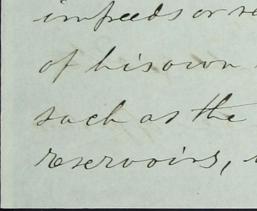 impeeds or re
of his own
such as the
reservoirs,